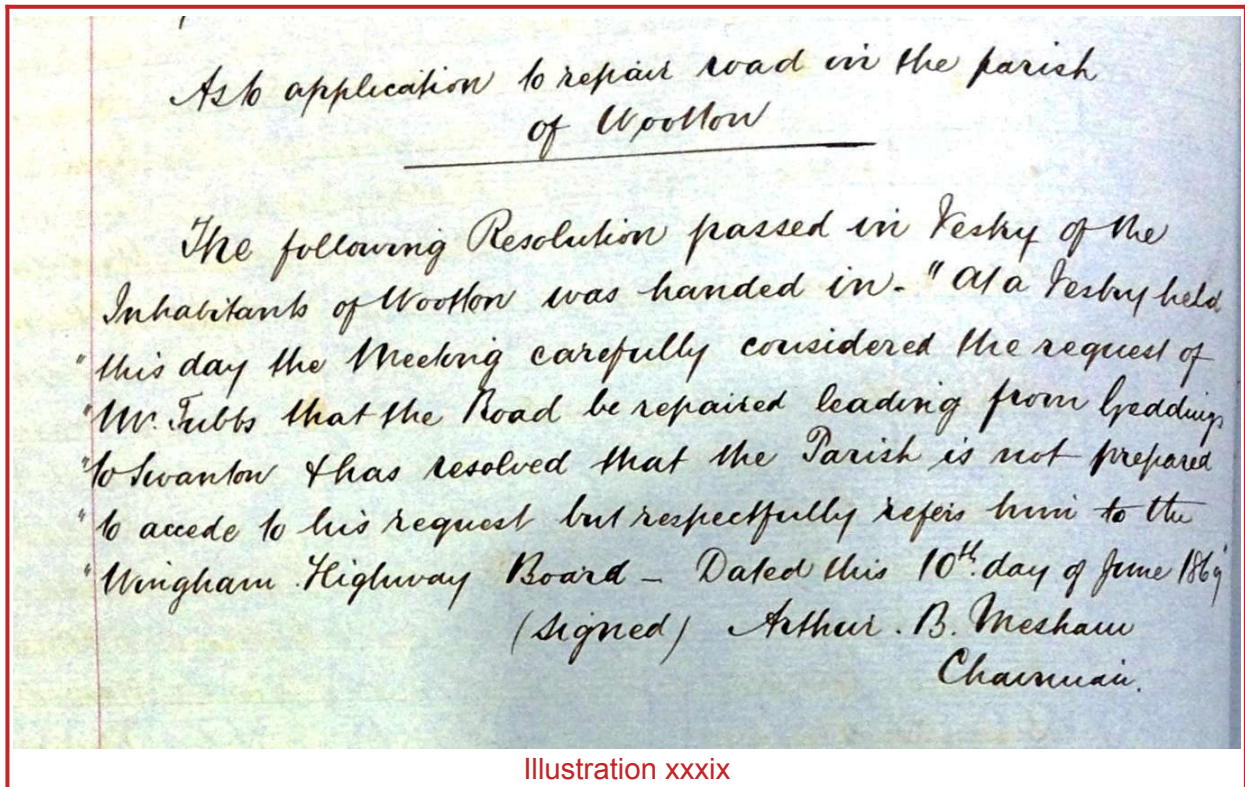 As to application to repair road in the parish
of Wootton
The following Resolution passed in Vestry of the
Inhabitants of Wootton was handed in - "At a Vestry held
"this day the Meeting carefully considered the request of
"Mr. Tubbs that the Road be repaired leading from Geddinge
"to Swanton & has resolved that the Parish is not prepared
"to accede to his request but respectfully refers him to the
"Wingham Highway Board - Dated this 10th. day of June 1869"
(signed) Arthur. B. Mesham
Chairman.
Illustration xxxix